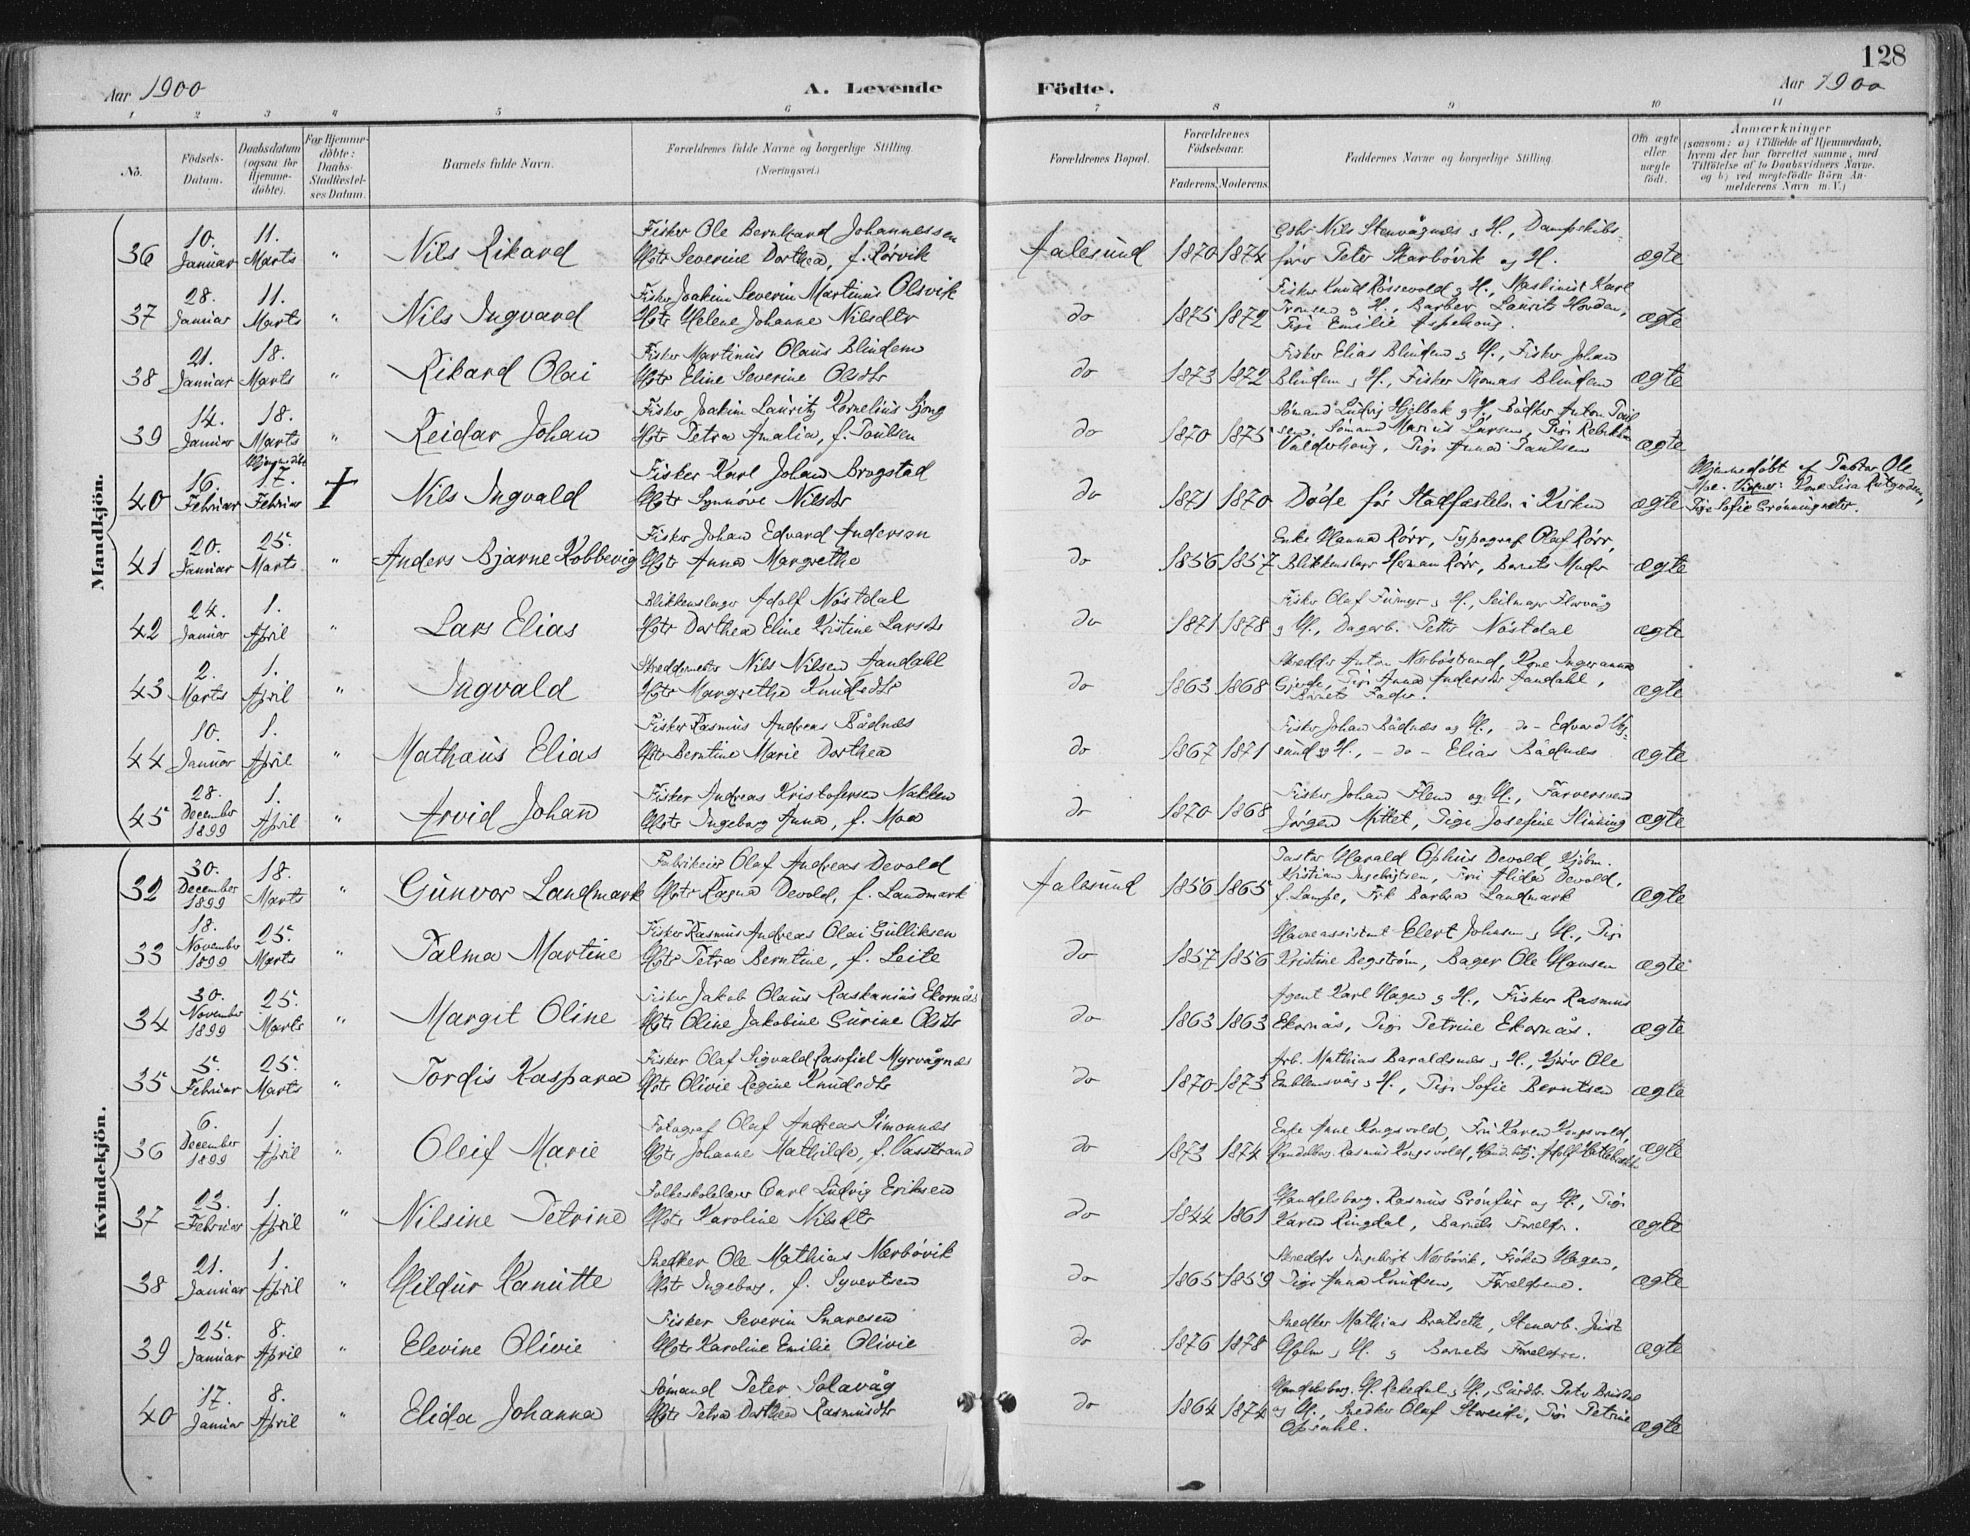 128
Aar 1900 A. Levende Födte. Aar 1900
1 2 3 4 5 6 7 8 9 10 11
No. Födsels-Datum. Daabsdatum (ogsaa for Hjemmedöbte). For Hjemmedöbte: Daabs-Stadfæstelses Datum. Barnets fulde Navn. Forældrenes fulde Navne og borgerlige Stilling. (Næringsvei.) Forældrenes Bopæl. Forældrenes Födselsaar. Faderens. Moderens. Faddernes Navne og borgerlige Stilling. Om ægte eller uægte födt. Anmærkninger (saasom: a) i Tilfælde af Hjemmedaab, hvem der har forrettet samme, med Tilföielse af to Daabsvidners Navne, og b) ved uægtefödte Börn Anmelderens Navn m. V.)
Mandkjön.
36 10. Januar 11. Marts " Nils Rikard Fisker Ole Bernhard Johannessen
Hstr Severine Dorthea, f. Rørvik Aalesund 1870 1874 Nils Stenvågnes og H., Dampskibs-
fører Peter Skarbövik og H. ægte
37 28. Januar 11. Marts " Nils Ingvard Fisker Joakim Severin Martinus Olsvik
Hstr Helene Johanne Nilsdtr do 1875 1872 Fisker Knud Røssevold og H., Maskinist Karl
H., Barber Laurits Hovden,
Pige Emilie Aspehaug. ægte
38 21. Januar 18. Marts " Rikard Olai Fisker Martinus Olaus Blindem
Hstr Eline Severine Olsdtr do 1873 1872 Fisker Elias Blindem og H., Fisker Johan
Blindem og H., Fisker Thomas Blindem ægte
39 14. Januar 18. Marts " Reidar Johan Fisker Joakim Lauritz Kornelius
Hstr Petra Amalia, f. Paulsen do 1870 1875 Sömand Ludvig og H., Bødker Anton Paul-
sen, Sømand Marius Larsen, Pige
Valderhaug, Pige Anna Paulsen ægte
40 16. Februar Hjemmedöbt 17. Februar + Nils Ingvald Fisker Karl Johan Brogstad
Hstr Synnöve Nilsdtr do 1871 1870 Döde før Stadfæstelse i Kirken ægte Hjemmedøbt af Pastor Ole
Kone Lisa
Pige Sofie
41 20. Januar 25. Marts " Anders Bjarne Kobbevig Fisker Johan Edvard Anderson
Hstr Anna Margrethe do 1856 1857 Enke Hanna Rörr, Typograf Olaf Rörr,
Blikkenslager Herman Rörr, Barnets Moder ægte
42 24. Januar 1. April " Lars Elias Blikkenslager Adolf Nöstdal
Hstr Dorthea Eline Kristine Larsdtr do 1871 1878 Fisker Olaf og H., Seilmager Flervåg
og H., Dagarb. Petter Nöstdal ægte
43 2. Marts 1. April " Ingvald Skreddermester Nils Nilsen Aandahl
Hstr Margrethe Knudsdtr do 1863 1868 Skredder Anton Nerböstrand, Kone Ingeranna
Gjerde, Pige Anna Andersdtr Aandahl,
Barnets Fader. ægte
44 10. Januar 1. April " Mathæus Elias Fisker Rasmus Andreas Bådnes
Hstr Berntine Marie Dorthea do 1867 1871 Fisker Johan Bådnes og H., - do - Edvard
sund og H., - do - Elias Bådnes ægte
45 28. December 1899 1. April " Arvid Johan Fisker Andreas Kristofersen Nakken
Hstr Ingeborg Anna, f. Moa do 1870 1868 Fisker Johan Flem og H., Farversvend
Jörgen Mittet, Pige Josefine ægte
Kvindekjön.
32 30. December 1899 18. Marts " Gunvor Landmark Fabrikeier Olaf Andreas Devold
Hstr Ragna Devold, f. Landmark Aalesund 1856 1865 Pastor Harald Ophus Devold, Kjöbm.
Kristian Ingebrigtsen, Fru Alida Devold,
f. Lampe, Frk Barbra Landmark ægte
33 18. November 1899 25. Marts " Palma Martine Fisker Rasmus Andreas Olai Gulliksen
Hstr Petra Berntine, f. Leite do 1857 1856 Havneassistent Elert Johnsen og H., Pige
Kristine Begström, Bager Ole Hansen ægte
34 30. November 1899 25. Marts " Margit Oline Fisker Jakob Olaus Raskanius Ekornås
Hstr Oline Jakobine Gurine Olsdtr do 1863 1863 Agent Karl Hagen og H., Fisker Rasmus
Ekornås, Pige Petrine Ekornås. ægte
35 5. Februar 25. Marts " Tordis Kaspara Fisker Olaf Sigvald Myrvågnes
Hstr Olivie Regine Knudsdtr do 1870 1873 Arb. Mathias Baraldsnes og H., Ole
Emblemsvåg og H., Pige Sofie Berntsen ægte
36 6. December 1899 1. April " Oleif Marie Fotograf Olaf Andreas Simonnes
Hstr Johanne Mathilde, f. Vasstrand do 1873 1874 Enke Anne Kongsvold, Fru Karen Kongsvold,
Handelsborg. Rasmus Kongsvold, Adolf ægte
37 23. Februar 1. April " Nilsine Petrine Folkeskolelærer Carl Ludvig Eriksen
Hstr Karoline Nilsdtr do 1844 1861 Handelsborg. Rasmus Grönfur og H., Pige
Karen Ringdal, Barnets Foreldr. ægte
38 21. Januar 1. April " Hildur Kanutte Snedker Ole Mathias Nerbövik
Hstr Ingeborg, f. Syvertsen do 1865 1859 Skredder Ingebrigt Nerbövik, Fröken Hagen,
Pige Anna Knudsen, Foreldrene. ægte
39 25. Januar 8. April " Elevine Olivie Fisker Severin Snaresen
Hstr Karoline Emilie Olivie do 1876 1878 Snedker Mathias Bratseth, Stenarb. Just
Holm og H. og Barnets Foreldre. ægte
40 17. Januar 8. April " Elida Johanna Sömand Peter Solavåg
Hstr Petra Dorthea Rasmusdtr do 1864 1874 Handelsborg. H. Rekedal og H., Gårdbr. Peter
og H., Snedker Olaf Pige Petrine
Opsahl. ægte